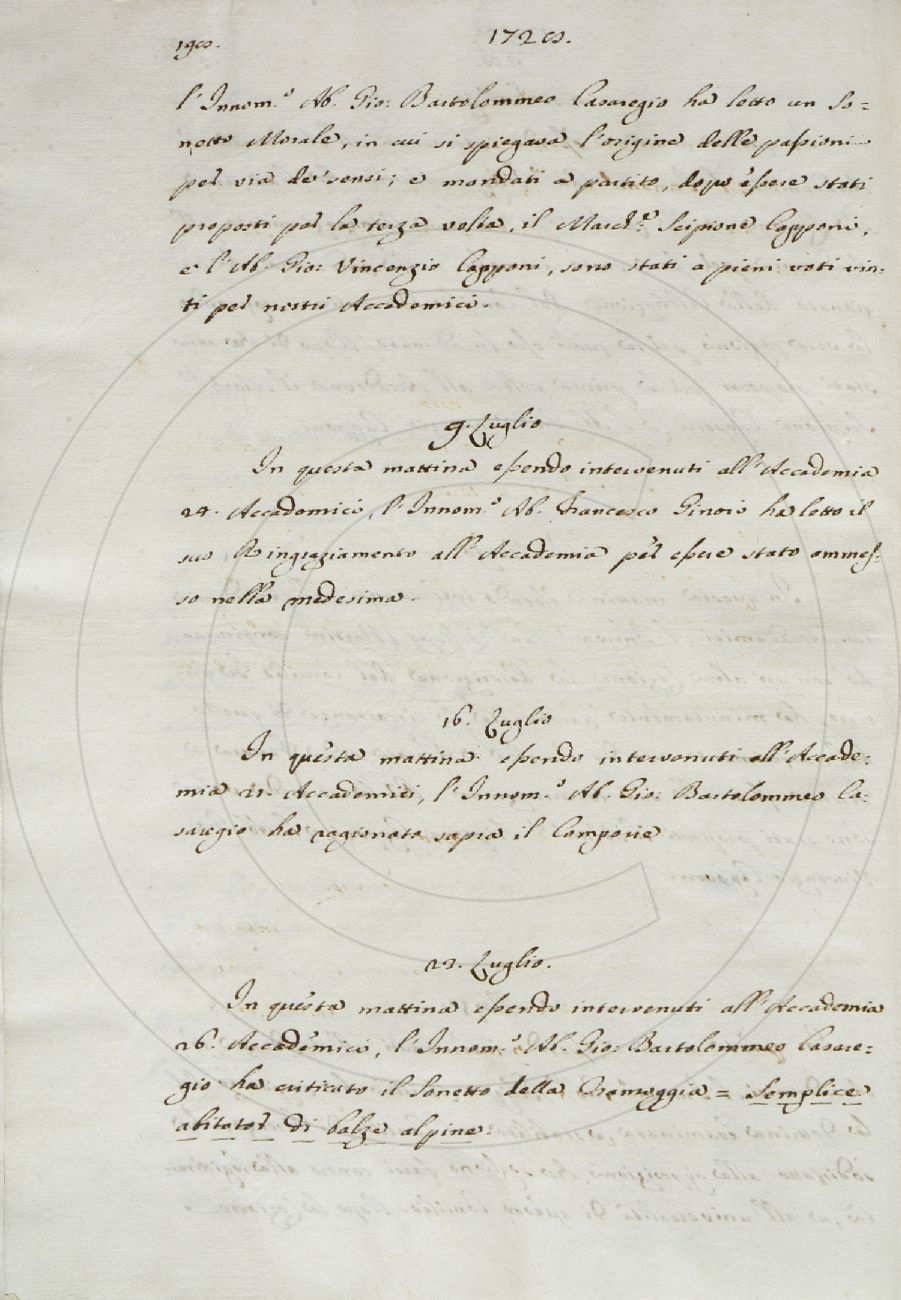 l'Innom.º Ab. Gio: Bartolommeo Casaregio ha letto un So=
netto Morale, in cui si spiegava l'origine delle passioni
per via de' sensi; e mandati a partito, dopo essere stati
proposti per la terza volta, il March.ᵉ Scipione Capponi,
e l'Ab. Gio: Vincenzio Capponi, sono stati a pieni voti vin=
ti per nostri Accademici.
9. Luglio
In questa mattina essendo intervenuti all'Accademia
24. Accademici, l'Innom.º Ab. Francesco Ginori ha letto il
suo Ringraziamento all'Accademia per essere stato ammes=
so nella medesima.
16. Luglio
In questa mattina essendo intervenuti all'Accade=
mia 21. Accademici, l'Innom.º Ab. Gio: Bartolommeo Ca=
saregio ha ragionato sopra il Comporre
23. Luglio.
In questa mattina essendo intervenuti all'Accademia
26. Accademici, l'Innom.º Ab. Gio: Bartolommeo Casare=
gio ha criticato il Sonetto della = Semplice
abitator di balze alpine.